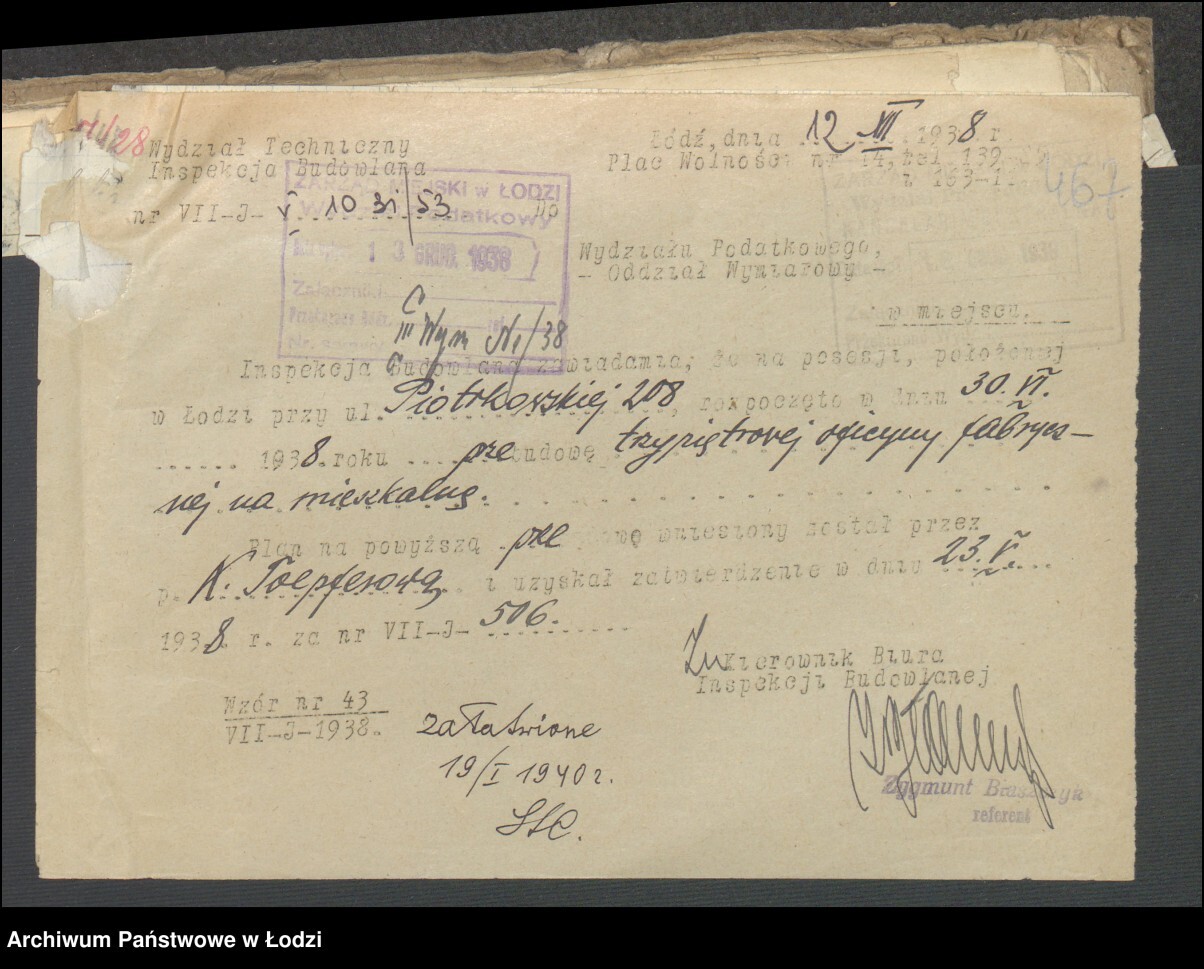 Wydział Techniczny
Inspekcja Budowlana
nr VII-J-
Łódź, dnia 12. XII. 1938 r.
Plac Wolności nr 14, tel. 139
163-1
467
ZARZĄD MIEJSKI w ŁODZI
Wydział Podatkowy
13 GRUD. 1938
Załączniki
Do
Wydziału Podatkowego,
- Oddział Wymiarowy -
w miejscu.
III Wym
/38
Inspekcja Budowlana zawiadamia, że na posesji, położonej
w Łodzi przy ul. Piotrkowskiej 208, rozpoczęto w dniu 30. VI.
1938. roku przebudowę trzypiętrowej oficyny fabrycz-
nej na mieszkalną.
Plan na powyższą przebudowę wniesiony został przez
p. K. Toepferową i uzyskał zatwierdzenie w dniu 23. V.
1938 r. za nr VII-J- 506.
Kierownik Biura
Inspekcji Budowlanej
Wzór nr 43
VII-J-1938.
załatwione
19/I 1940 r.
Zygmunt
referent
Archiwum Państwowe w Łodzi